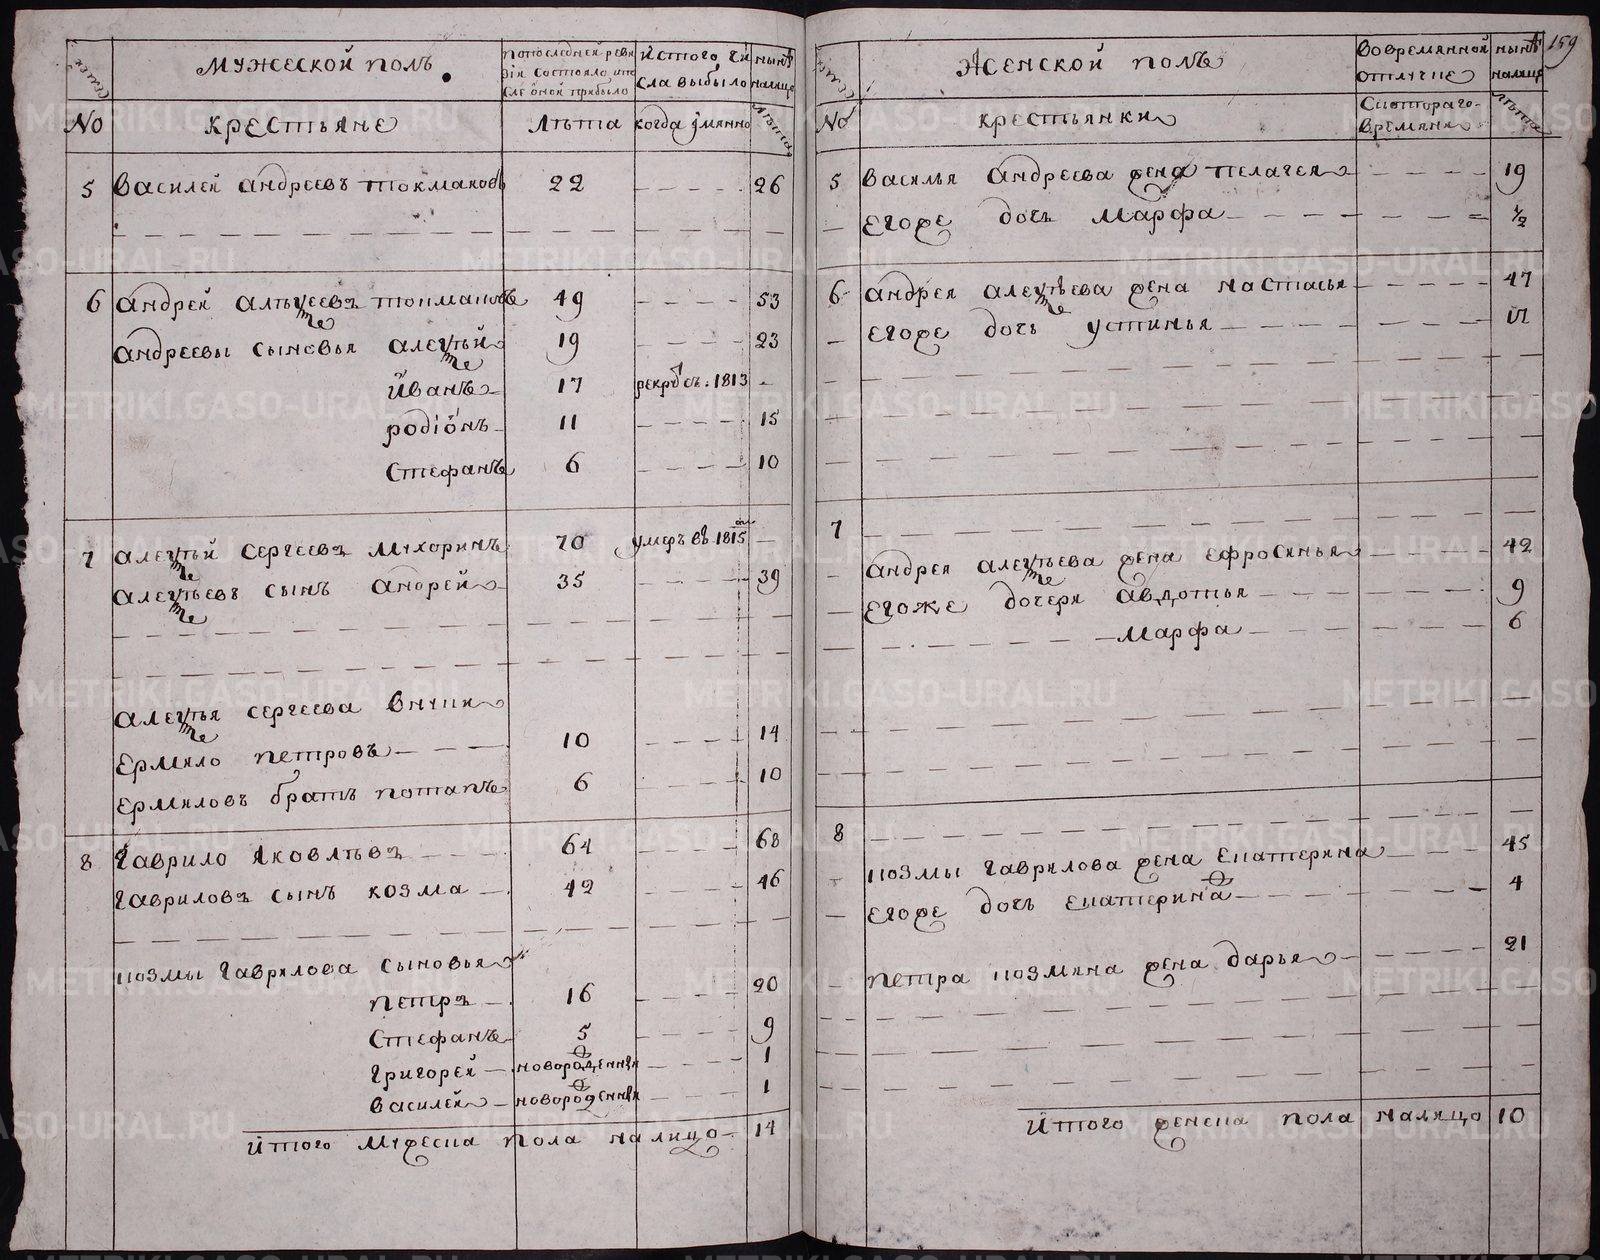 семьи
мужеской полъ
Попоследней реви
зiи состояло ипо
сле оной прибыло
Истого чи
сла выбыло
нынѣ
налицо
No
крестьяне
лѣта
когда имянно
лѣта
5 Василей андреевъ токмаковъ 22 26
6 андрей алеѯеевъ токмаковъ 49 53
андреевы сыновья алеѯей 19 23
йванъ 17 рекрутъ: 1813
родiонъ 11 15
Стефанъ 6 10
7 алеѯей сергеевъ мухоринъ 70 умеръ въ 1815
алеѯеевъ сынъ андрей 35 39
алеѯея сергеева внуки
Ермило петровъ 10 14
Ермиловъ братъ потапъ 6 10
8 Гаврило яковлевъ 64 68
Гавриловъ сынъ козма 42 46
козмы Гаврилова сыновья
петръ 16 20
Стефанъ 5 9
Григорей новорожденныя 1
Василей новорожденныя 1
йтого мужеска пола налицо 14
159
семьи
Женской полъ
Вовремянной
отлучке
нынѣ
налицо
No
крестьянки
Скотораго
времяни
лѣта
5 Василья андреева жена пелагея 19
Егоже дочь марфа 1/2
6 андрея алеѯеева жена настасья 47
Егоже дочь устинья
7
андрея алеѯеева жена ефросинья 42
Егоже дочери авдотья 9
марфа 6
8
козмы гаврилова жена екатерина 45
Егоже дочь екатерина 4
петра козмина жена дарья 21
йтого женска пола налицо 10
METRIKI.GASO-URAL.RU